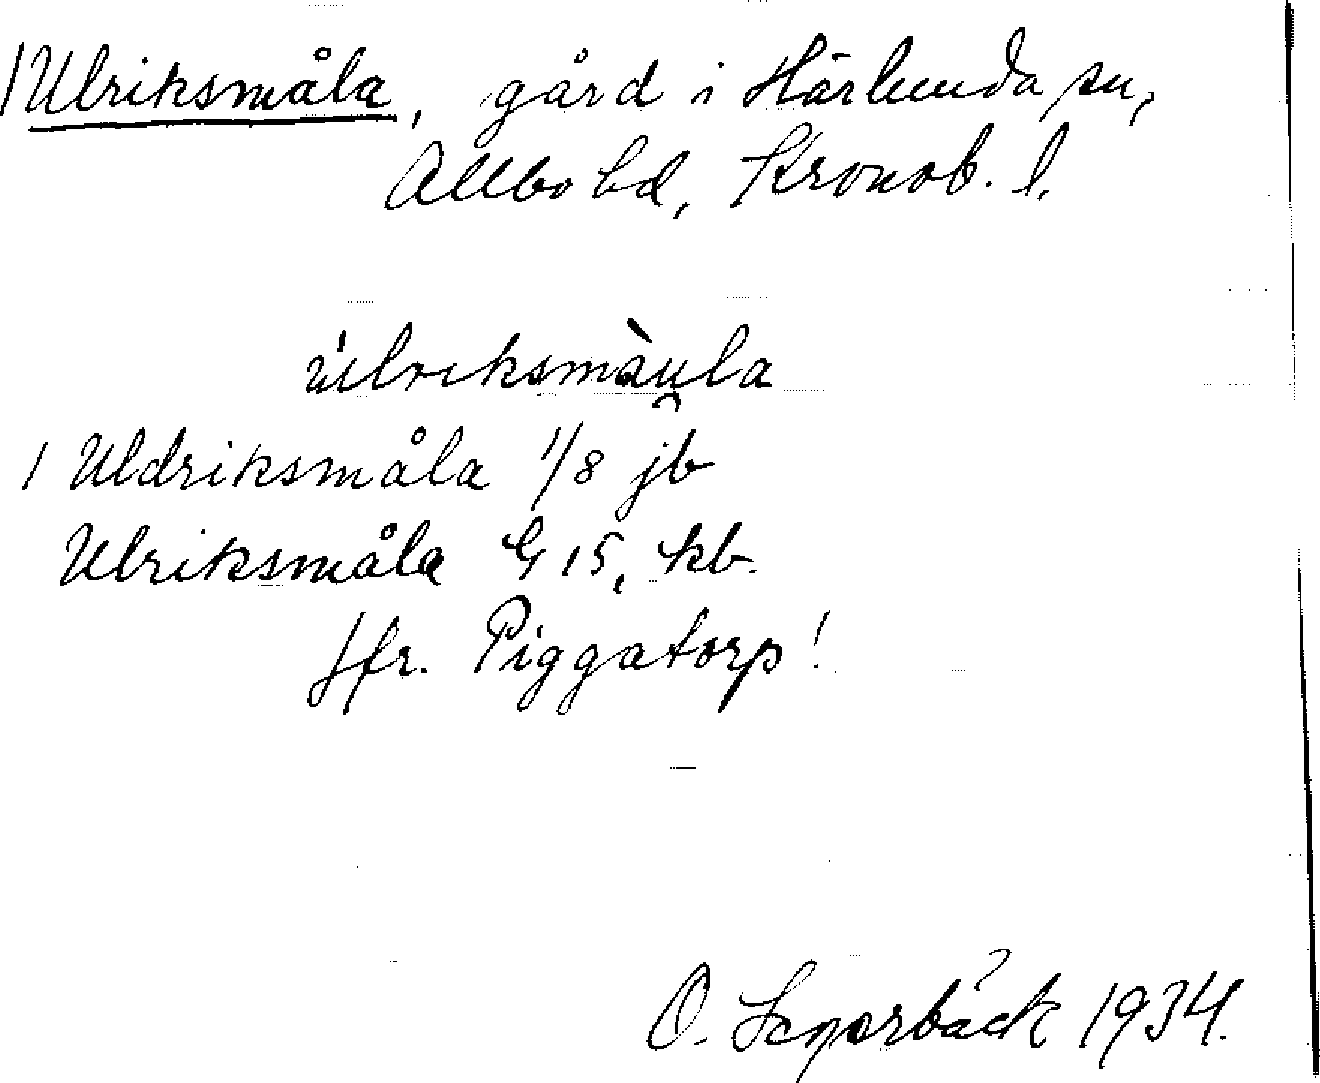 / Ulriksmåla, gård i Härlunda sn,
Allbo hd, Kronob. l.
ùlriksmàu̯la
/ Uldriksmåla 1/8 jb
Ulriksmåla G 15, kb.
Jfr. Piggatorp!
O. Lagerbäck 1934.